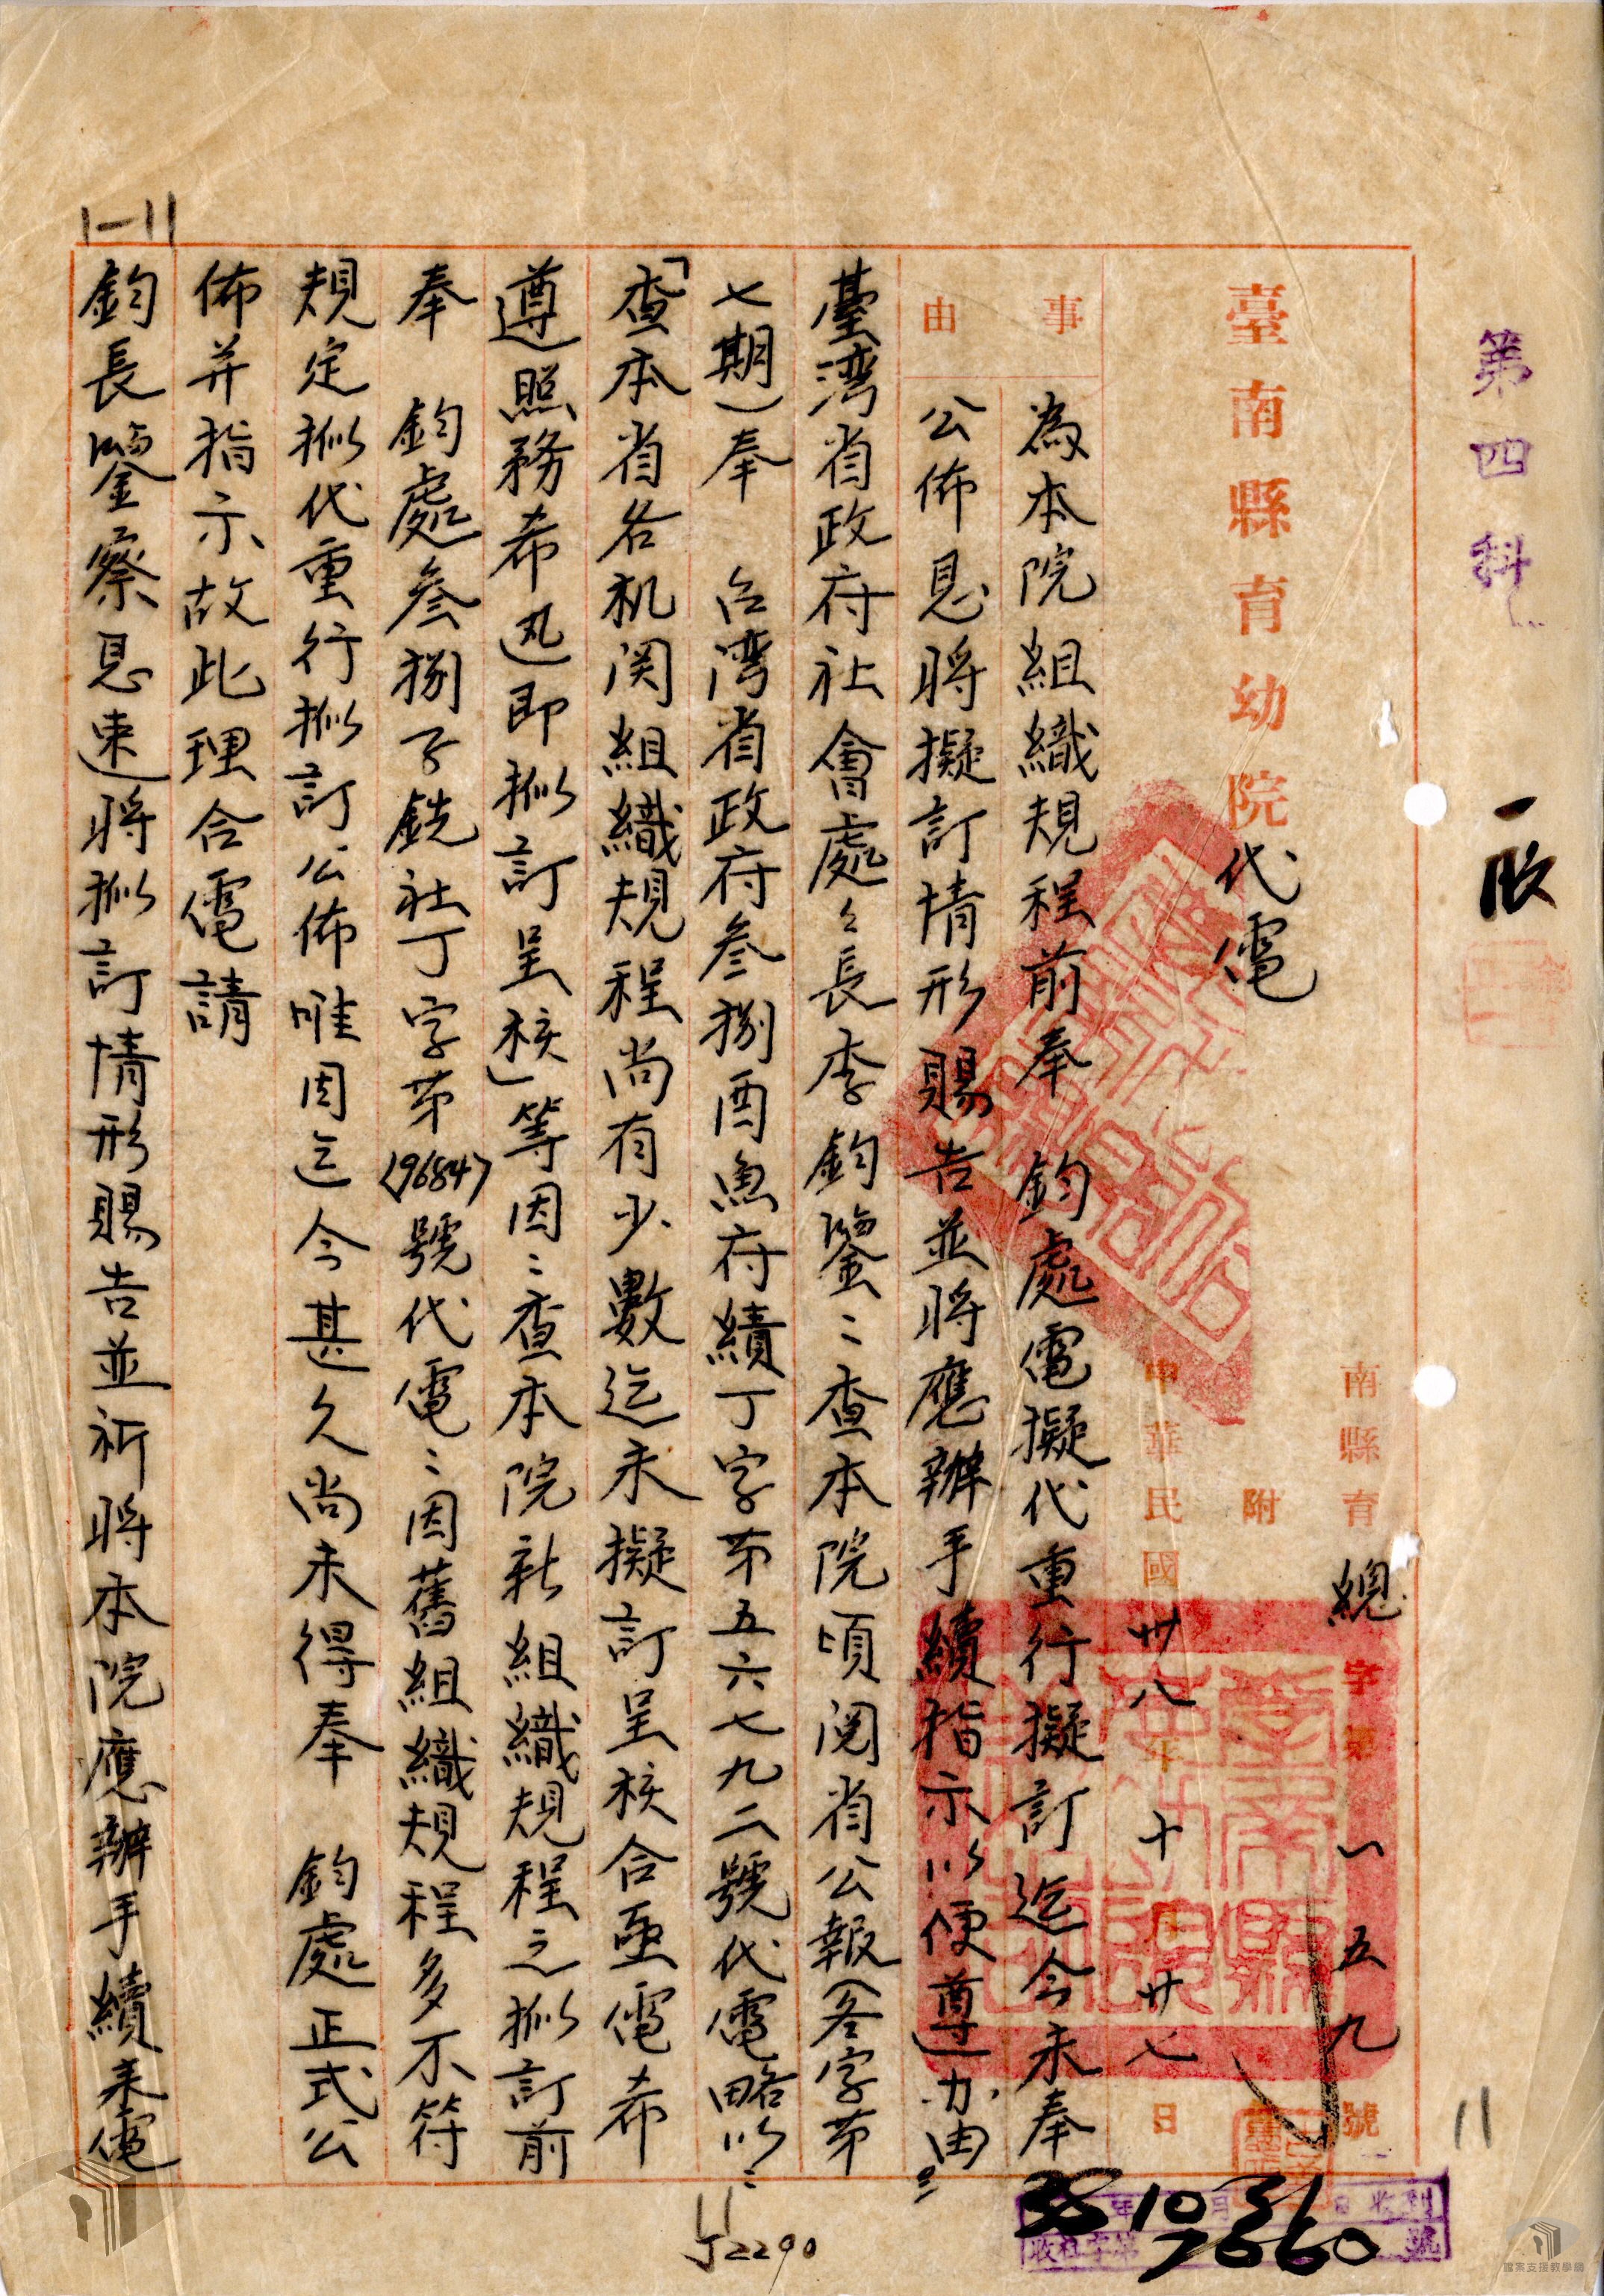 第四科
南縣育總字第一五九號
臺南縣育幼院代電
附
中華民國卅八年十月廿七日
事由
為本院組織規程前奉 鈞處電擬代重行擬訂迄今未奉
公佈息將擬訂情形賜告並將應辦手續指示以便遵办由
臺湾省政府社會處々長李鈞鑒:查本院頃閱省公報(冬字第
七期)奉 台湾省政府叁捌酉魚府績丁字第五六七九二號代電略以:
「查本省各机関組織規程尚有少數迄未擬訂呈核合亟電希
遵照務希迅即拟訂呈核」等因:查本院新組織規程之拟訂前
奉 鈞處叁捌子銑社丁字第(96847)號代電:因舊組織規程多不符
規定拟代重行拟訂公佈唯因迄今甚久尚未得奉 鈞處正式公
佈并指示故此理合電請
鈞長鑒察息速將拟訂情形賜告並祈將本院應辦手續來電
1-11
11
11
J2290
年 月 日收到
38 10 31
收社字第 號
7660
檔案支援教學網